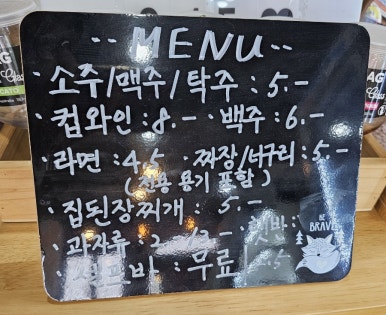 -- MENU --
· 소주/맥주/탁주 : 5.-
· 컵와인 : 8.- · 백주 : 6.-
· 라면 : 4.5 · 짜장/너구리 : 5.-
( 전용 용기 포함 )
· 집된장찌개 : 5.-
· 과자류 : 2
햇반
무료
BE
BRAVE